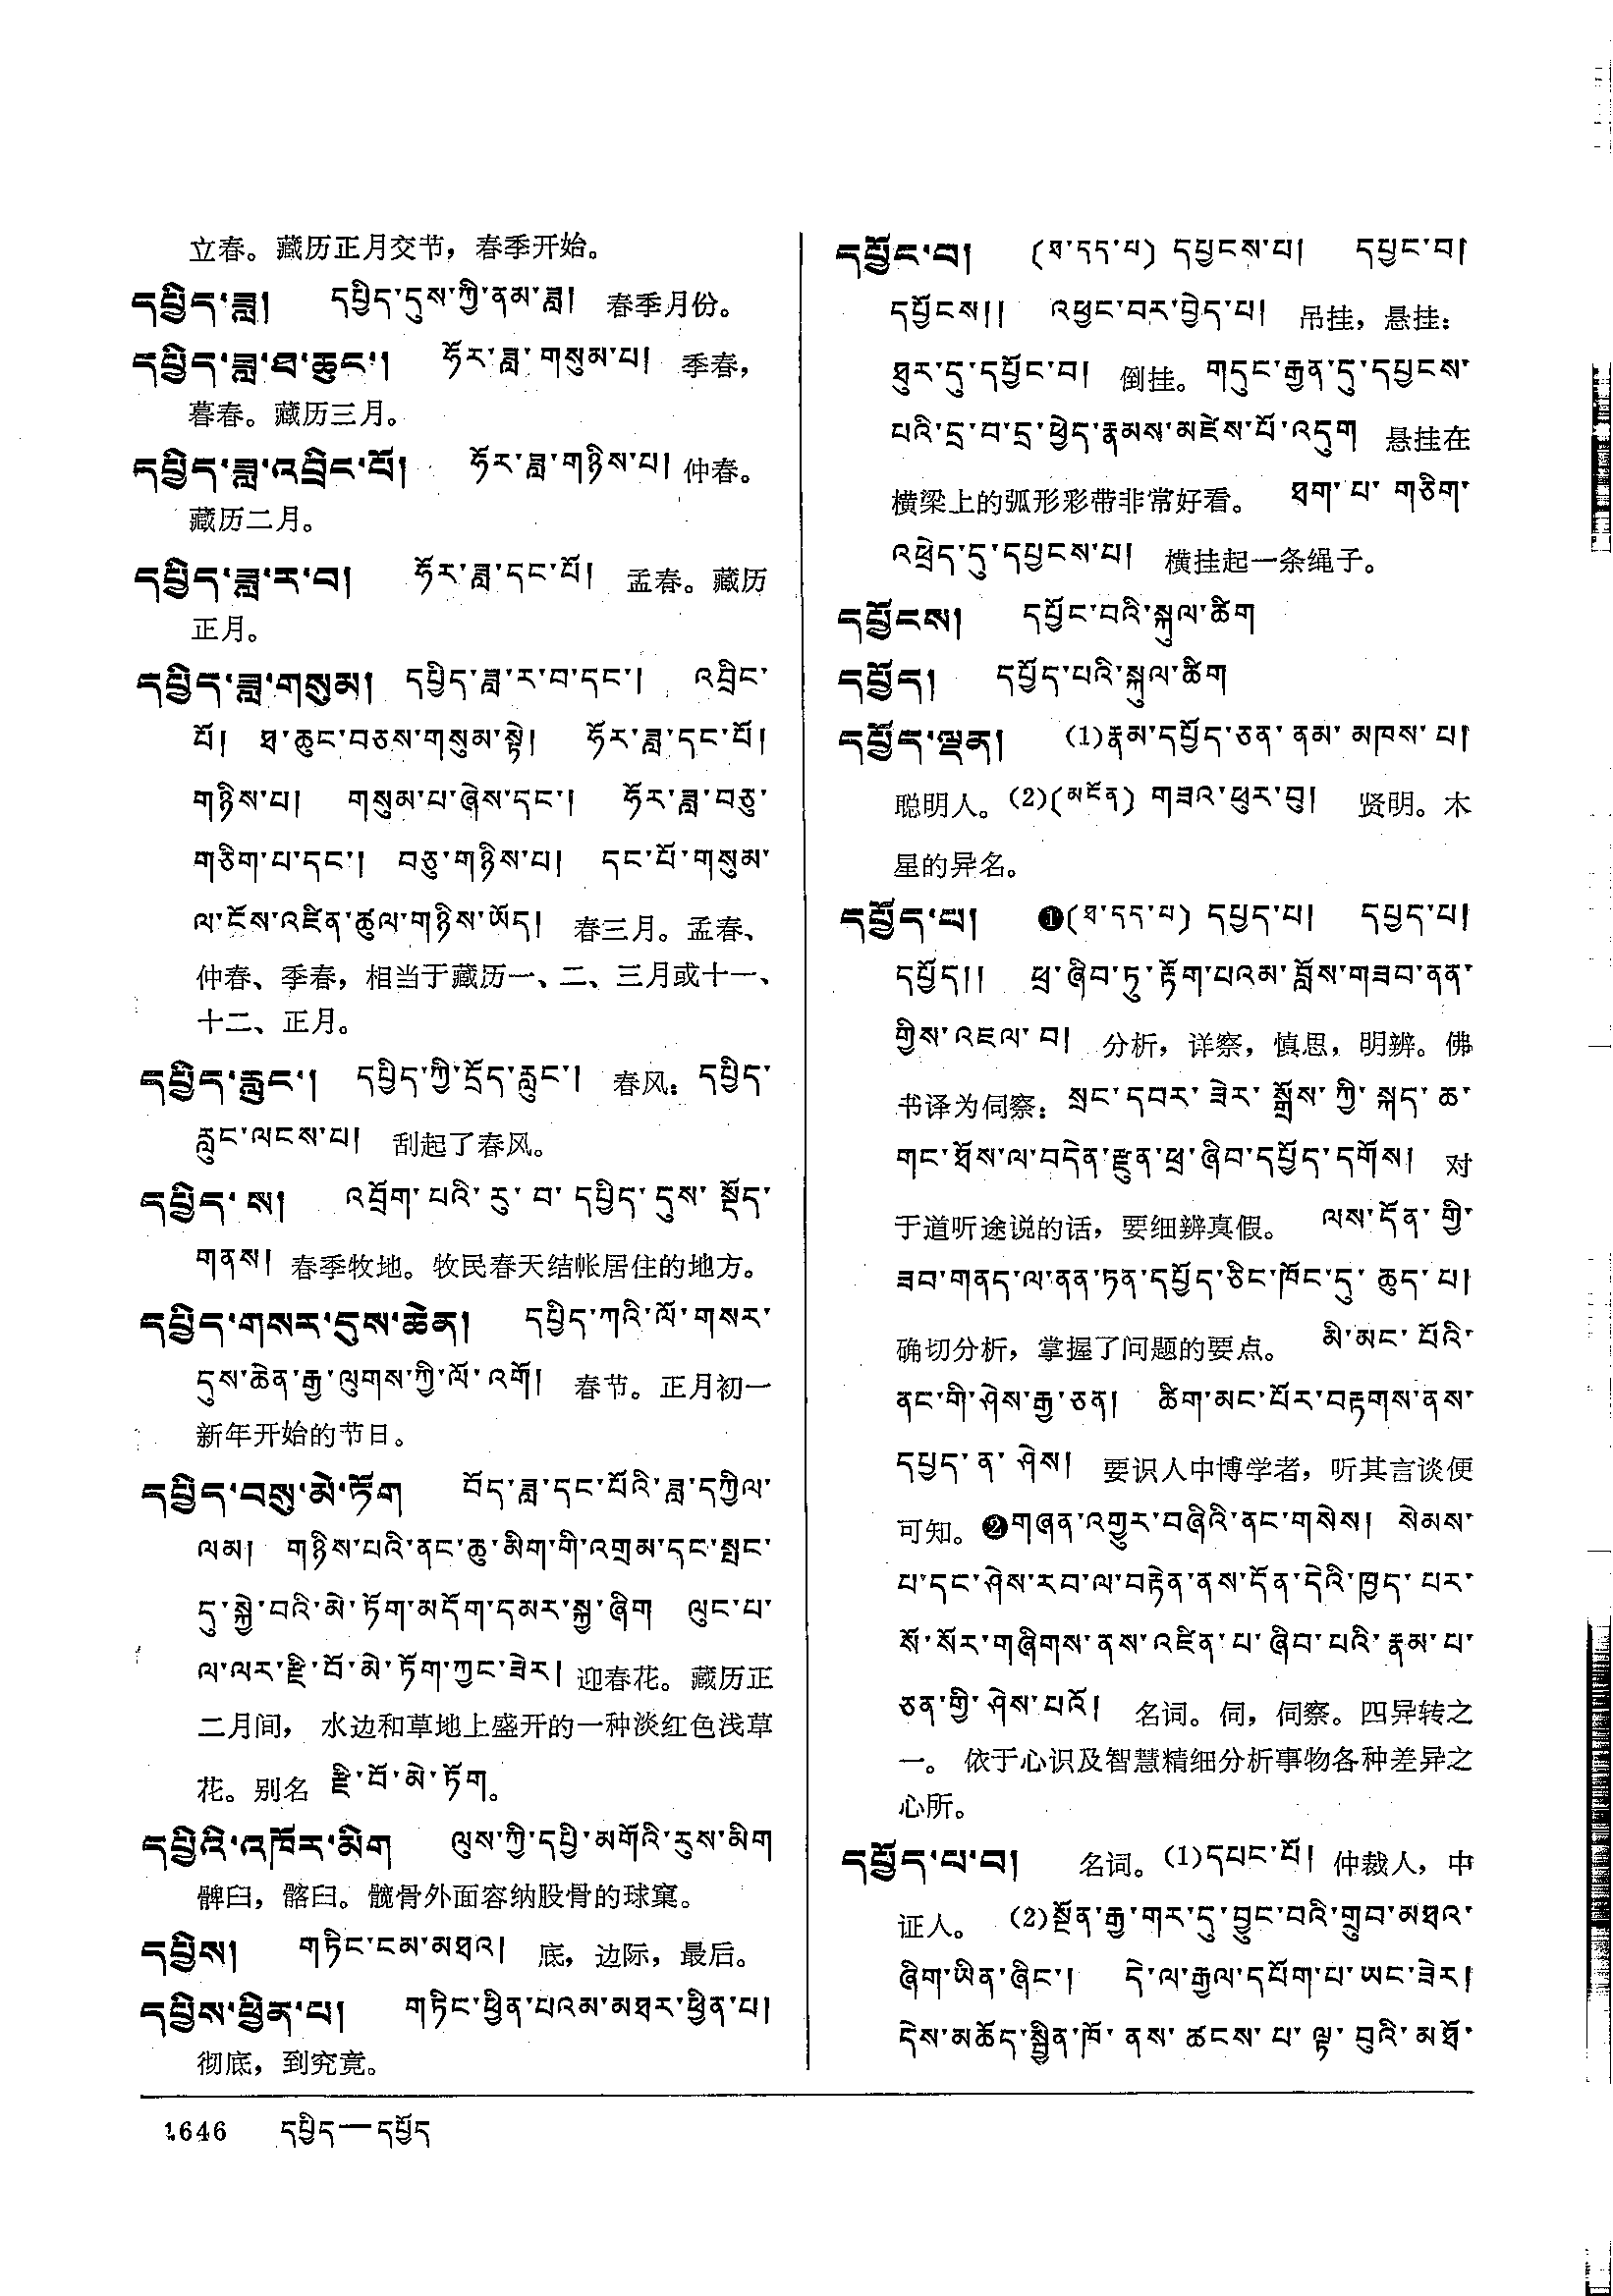 立春。藏历正月交节，春季开始。
དཔྱིད་ཟླ། དཔྱིད་དུས་ཀྱི་ནམ་ཟླ། 春季月份。
དཔྱིད་ཟླ་ཐ་ཆུང་། ཧོར་ཟླ་གསུམ་པ། 季春，
暮春。藏历三月。
དཔྱིད་ཟླ་འབྲིང་པོ། ཧོར་ཟླ་གཉིས་པ། 仲春。
藏历二月。
དཔྱིད་ཟླ་ར་བ། ཧོར་ཟླ་དང་པོ། 孟春。藏历
正月。
དཔྱིད་ཟླ་གསུམ། དཔྱིད་ཟླ་ར་བ་དང་། འབྲིང་
པོ། ཐ་ཆུང་བཅས་གསུམ་སྟེ། ཧོར་ཟླ་དང་པོ།
གཉིས་པ། གསུམ་པ་ཞེས་དང་། ཧོར་ཟླ་བཅུ་
གཅིག་པ་དང་། བཅུ་གཉིས་པ། དང་པོ་གསུམ་
ལ་ངོས་འཛིན་ཚུལ་གཉིས་ཡོད། 春三月。孟春、
仲春、季春，相当于藏历一、二、三月或十一、
十二、正月。
དཔྱིད་རླུང་། དཔྱིད་ཀྱི་དྲོད་རླུང་། 春风：དཔྱིད་
རླུང་ལངས་པ། 刮起了春风。
དཔྱིད་ས། འབྲོག་པའི་རུ་བ་དཔྱིད་དུས་སྡོད་
གནས། 春季牧地。牧民春天结帐居住的地方。
དཔྱིད་གསར་དུས་ཆེན། དཔྱིད་ཀའི་ལོ་གསར་
དུས་ཆེན་རྒྱ་ལུགས་ཀྱི་ལོ་འགོ། 春节。正月初一
新年开始的节日。
དཔྱིད་བསུ་མེ་ཏོག བོད་ཟླ་དང་པོའི་ཟླ་དཀྱིལ་
ལམ། གཉིས་པའི་ནང་ཆུ་མིག་གི་འགྲམ་དང་སྤང་
དུ་སྐྱེ་བའི་མེ་ཏོག་མདོག་དམར་སྐྱ་ཞིག ལུང་པ་
ལ་ལར་རྫི་བོ་མེ་ཏོག་ཀྱང་ཟེར། 迎春花。藏历正
二月间，水边和草地上盛开的一种淡红色浅草
花。别名 རྫི་བོ་མེ་ཏོག。
དཔྱིའི་འཁོར་མིག ལུས་ཀྱི་དཔྱི་མགོའི་རུས་མིག
髀臼，髂臼。髋骨外面容纳股骨的球窠。
དཔྱིས། གཏིང་ངམ་མཐའ། 底，边际，最后。
དཔྱིས་ཕྱིན་པ། གཏིང་ཕྱིན་པའམ་མཐར་ཕྱིན་པ།
彻底，到究竟。
དཔྱོང་བ། (ཐ་དད་པ) དཔྱངས་པ། དཔྱང་བ།
དཔྱོངས།། འཕྱང་བར་བྱེད་པ། 吊挂，悬挂：
ཐུར་དུ་དཔྱོང་བ། 倒挂。གདུང་རྒྱན་དུ་དཔྱངས་
པའི་དྲ་བ་དྲ་ཕྱེད་རྣམས་མཛེས་པོ་འདུག 悬挂在
横梁上的弧形彩带非常好看。 ཐག་པ་གཅིག་
འཕྲེད་དུ་དཔྱངས་པ། 横挂起一条绳子。
དཔྱོངས། དཔྱོང་བའི་སྐུལ་ཚིག
དཔྱོད། དཔྱོད་པའི་སྐུལ་ཚིག
དཔྱོད་ལྡན། (1)རྣམ་དཔྱོད་ཅན་ནམ་མཁས་པ།
聪明人。(2)(མངོན) གཟའ་ཕུར་བུ། 贤明。木
星的异名。
དཔྱོད་པ། ❶(ཐ་དད་པ) དཔྱད་པ། དཔྱད་པ།
དཔྱོད།། ཕྲ་ཞིབ་ཏུ་རྟོག་པའམ་བློས་གཟབ་ནན་
གྱིས་འཇལ་བ། 分析，详察，慎思，明辨。佛
书译为伺察：སྲང་དབར་ཟེར་སྒྲོས་ཀྱི་སྐད་ཆ་
གང་ཐོས་ལ་བདེན་རྫུན་ཕྲ་ཞིབ་དཔྱོད་དགོས། 对
于道听途说的话，要细辨真假。 ལས་དོན་གྱི་
ཟབ་གནད་ལ་ནན་ཏན་དཔྱོད་ཅིང་ཁོང་དུ་ཆུད་པ།
确切分析，掌握了问题的要点。 མི་མང་པོའི་
ནང་གི་ཤེས་རྒྱ་ཅན། ཚིག་མང་པོར་བརྟགས་ནས་
དཔྱད་ན་ཤེས། 要识人中博学者，听其言谈便
可知。❷གཞན་འགྱུར་བཞིའི་ནང་གསེས། སེམས་
པ་དང་ཤེས་རབ་ལ་བརྟེན་ནས་དོན་དེའི་ཁྱད་པར་
སོ་སོར་གཞིགས་ནས་འཛིན་པ་ཞིབ་པའི་རྣམ་པ་
ཅན་གྱི་ཤེས་པའོ། 名词。伺，伺察。四异转之
一。依于心识及智慧精细分析事物各种差异之
心所。
དཔྱོད་པ་བ། 名词。(1)དཔང་པོ། 仲裁人，中
证人。 (2)སྔོན་རྒྱ་གར་དུ་བྱུང་བའི་གྲུབ་མཐའ་
ཞིག་ཡིན་ཞིང་། དེ་ལ་རྒྱལ་དཔོག་པ་ཡང་ཟེར།
དེས་མཆོད་སྦྱིན་ཁོ་ནས་ཚངས་པ་ལྟ་བུའི་མཐོ་
1646 དཔྱིད—དཔྱོད